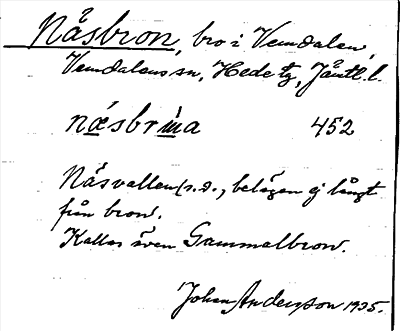 Näsbron, bro i Vemdalen,
Vemdalens sn, Hede tg, Jämtl. l.
næsbrùa 452
Näsvallen (s.d., belägen ej långt
från bron.
Kallas även Gammelbron.
Johan Andersson 1935.